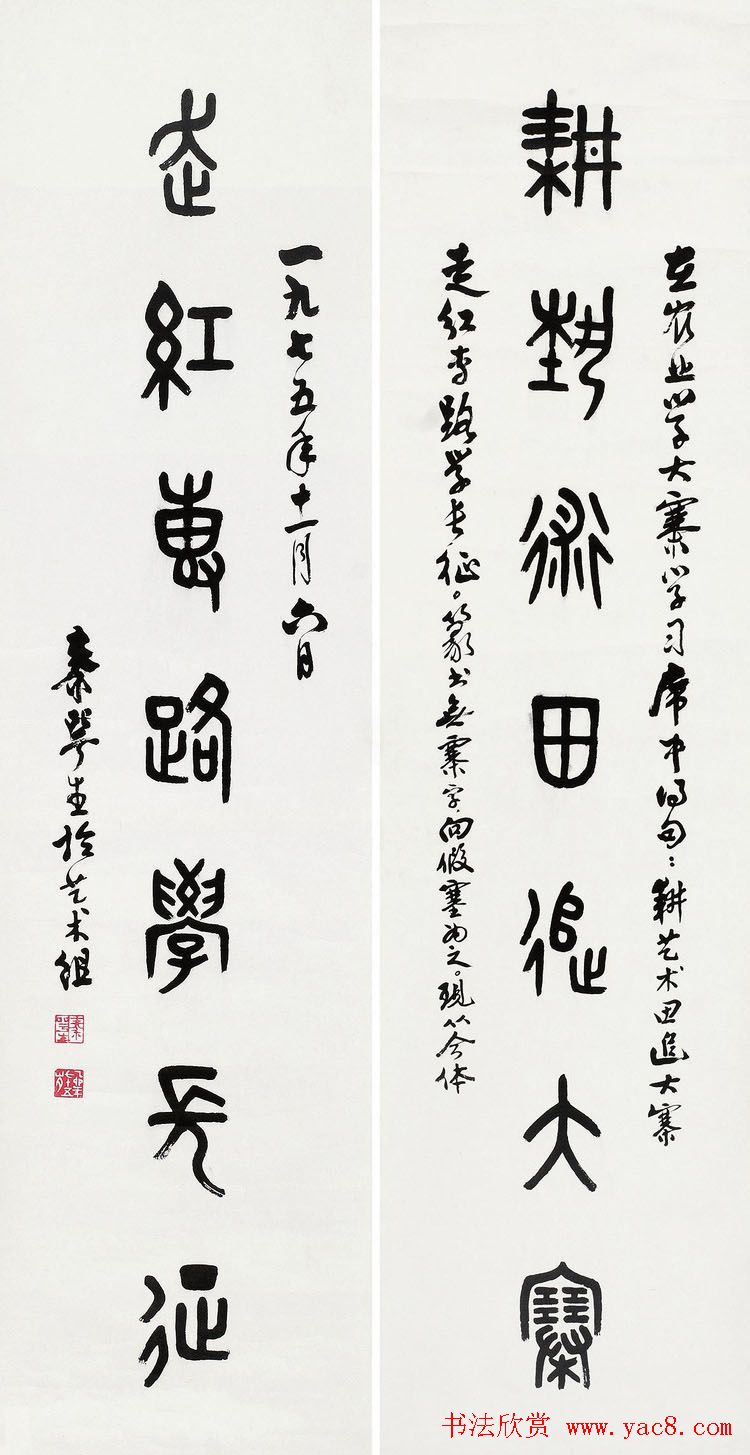 在农业学大寨学习席中得句：耕艺术田追大寨
耕埶術田追大寨
走红专路学长征。篆书无寨字，向假塞为之。现从今体
一九七五年十一月六日
走紅專路學長征
秦咢生於艺术组
书法欣赏 www.yac8.com